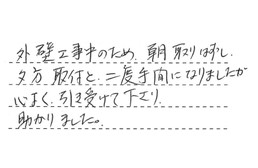 外壁工事中のため、朝取りはずし、
夕方取付と、二度手間になりましたが
心よく、引き受けて下さり、
助かりました。